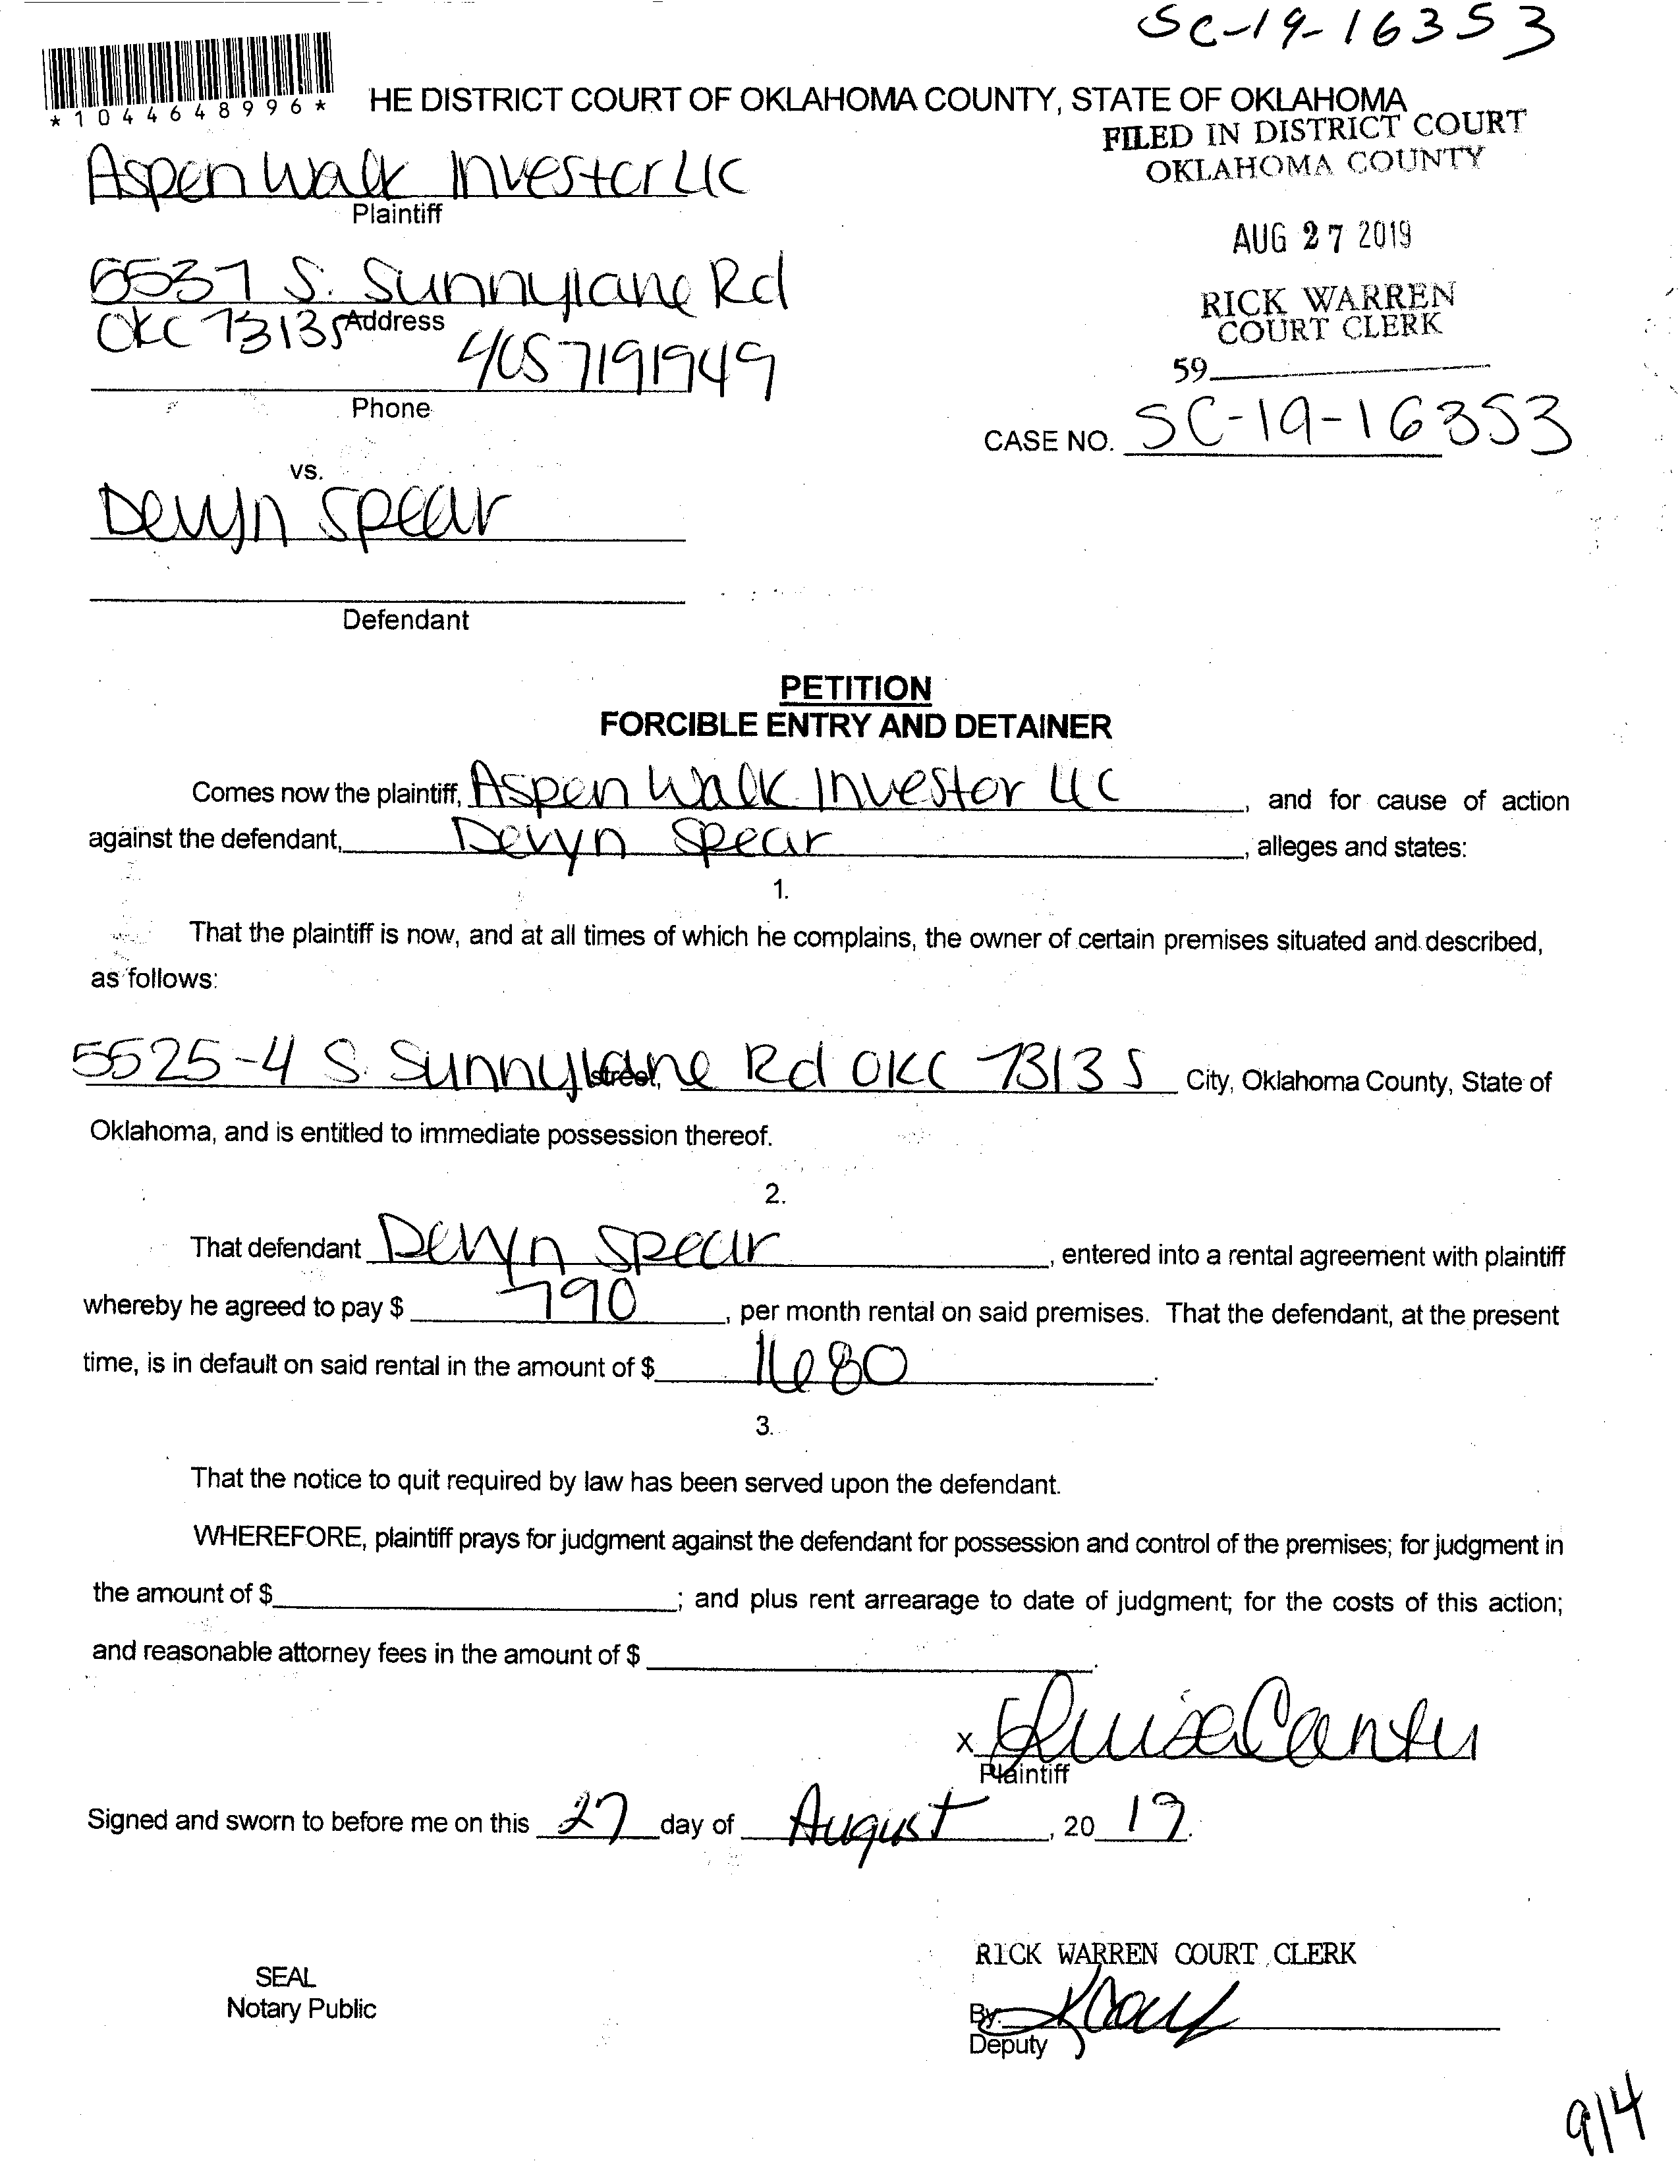 SC-19-16353
*1044648996*
HE DISTRICT COURT OF OKLAHOMA COUNTY, STATE OF OKLAHOMA
FILED IN DISTRICT COURT
OKLAHOMA COUNTY
Aspen Walk Investor LLC
Plaintiff
AUG 27 2019
5537 S. Sunnylane Rd
RICK WARREN
COURT CLERK
OKC 73135 Address
405 7191949
59
Phone
CASE NO. SC-19-16353
vs.
Devyn Spear
Defendant
PETITION
FORCIBLE ENTRY AND DETAINER
Comes now the plaintiff, Aspen Walk Investor LLC, and for cause of action
against the defendant, Devyn Spear, alleges and states:
1.
That the plaintiff is now, and at all times of which he complains, the owner of certain premises situated and described,
as follows:
5525-4 S. Sunnylane Rd OKC 73135 City, Oklahoma County, State of
street,
Oklahoma, and is entitled to immediate possession thereof.
2.
That defendant Devyn Spear, entered into a rental agreement with plaintiff
whereby he agreed to pay $ 790, per month rental on said premises. That the defendant, at the present
time, is in default on said rental in the amount of $ 1680.
3.
That the notice to quit required by law has been served upon the defendant.
WHEREFORE, plaintiff prays for judgment against the defendant for possession and control of the premises; for judgment in
the amount of $; and plus rent arrearage to date of judgment; for the costs of this action;
and reasonable attorney fees in the amount of $.
X
Plaintiff
Signed and sworn to before me on this 27 day of August, 20 19.
RICK WARREN COURT CLERK
SEAL
Notary Public
By:
Deputy
9/4